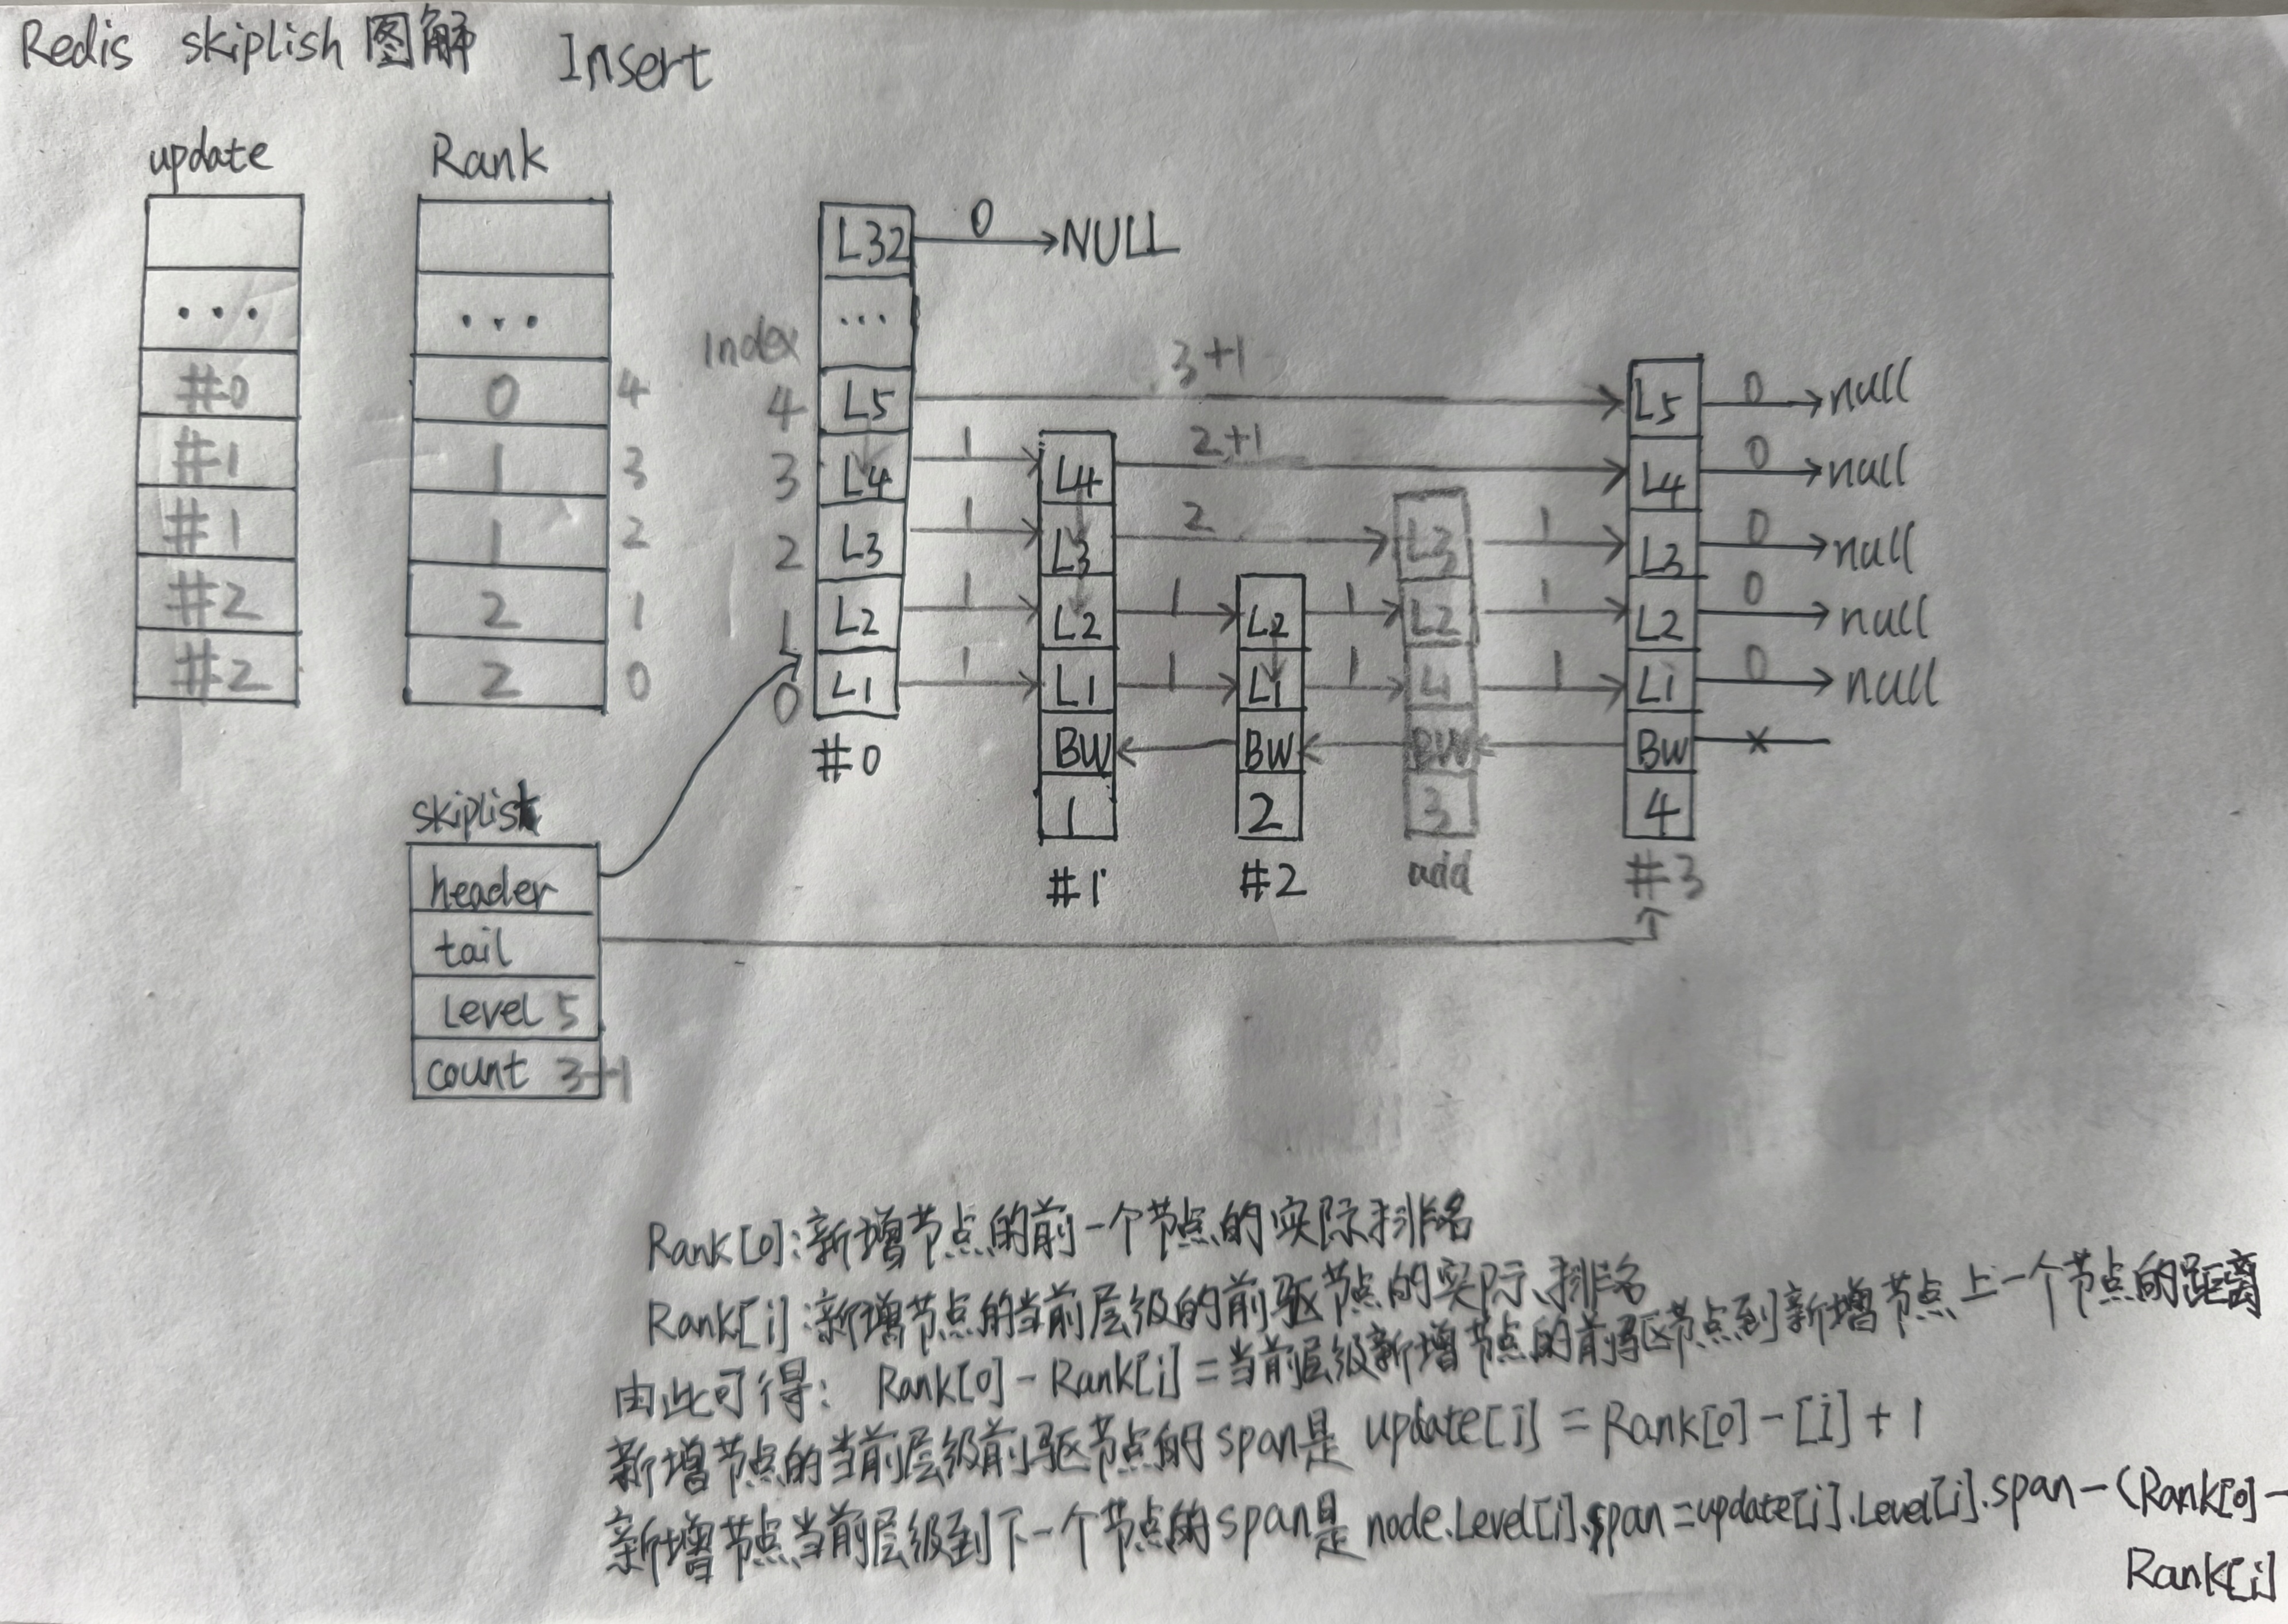 Redis skiplish 图解 Insert
update Rank
L32 0 NULL
... ... Index ...
#0 0 4 4 L5 3+1 L5 0 null
#1 1 3 3 L4 1 L4 2+1 L4 0 null
#1 1 2 2 L3 1 L3 2 L3 1 L3 0 null
#2 2 1 1 L2 1 L2 1 L2 1 L2 1 L2 0 null
#2 2 0 0 L1 1 L1 1 L1 1 L1 1 L1 0 null
#0 BW BW BW BW x
skiplist 1 2 3 4
header #1 #2 add #3
tail
Level 5
count 3+1
Rank[0]:新增节点的前一个节点的实际排名
Rank[i]:新增节点的当前层级的前驱节点的实际排名
由此可得: Rank[0]-Rank[i]=当前层级新增节点的前驱节点到新增节点上一个节点的距离
新增节点的当前层级前驱节点的span是 update[i]=Rank[0]-[i]+1
新增节点当前层级到下一个节点的span是 node.Level[i].span=update[i].Level[i].span-(Rank[0]-
Rank[i]